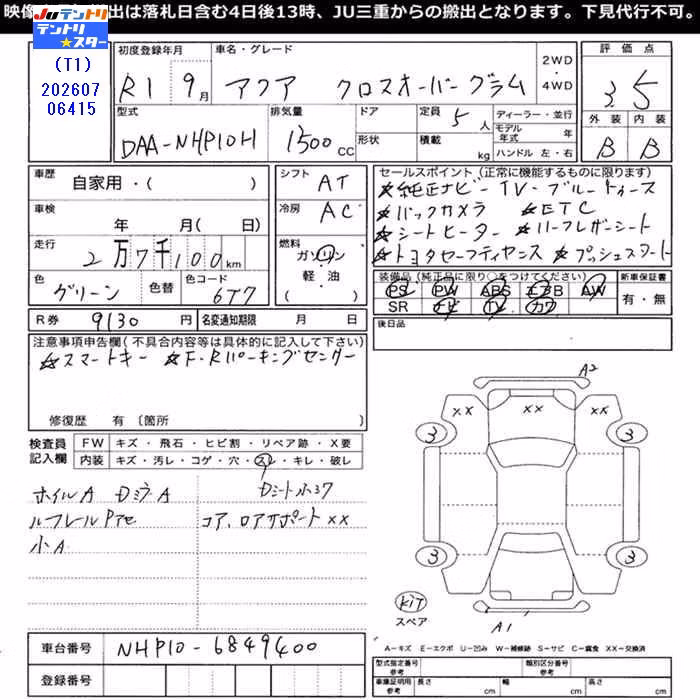 映像 出は落札日含む4日後13時、JU三重からの搬出となります。下見代行不可。
JUテントリ
テントリ★スター
(T1)
202607
06415
初度登録年月 車名・グレード 2WD・4WD 評価点
R1 9月 アクア クロスオーバーグラム 3.5
型式 排気量 ドア 定員 ディーラー・並行 外装 内装
DAA-NHP10H 1500cc 形状 5人 積載 kg モデル年式 年 ハンドル 左・右 B B
車歴 自家用・( ) シフト AT セールスポイント(正常に機能するものに限ります)
☆純正ナビ-TV・ブルートゥース
車検 年 月( 日) 冷房 AC ☆バックカメラ ☆ETC
☆シートヒーター ☆ハーフレザーシート
走行 2万7千100km 燃料 ガソリン・軽・油 ( ) ☆トヨタセーフティセンス ☆プッシュスタート
色 グリーン 色替 色コード 6T7 装備品(純正品に限り○をつけてください) 新車保証書
PS PW ABS エアB AW 有・無
SR ナビ TV カワ
R券 9130円 名変通知期限 月 日 後日品
注意事項申告欄(不具合内容等は具体的に記入して下さい)
☆スマートキー ☆F・Rパーキングセンサー
修復歴 有 〔箇所 〕
検査員記入欄 FW キズ・飛石・ヒビ割・リペア跡・X要
内装 キズ・汚レ・コゲ・穴・スレ・キレ・破レ
ホイルA DミラA Dシート小スレ
ルーフレールPアセ コア、ロアサポートXX
小A
A2
XX XX XX
3 3
3 3
KiT
スペア
A1
A-キズ E-エクボ U-凹み W-補修跡 S-サビ C-腐食 XX-交換済
車台番号 NHP10-6849400
登録番号
型式指定番号 参考 類別区分番号 参考
車庫証明用 参考 長さ cm 幅 cm 高さ cm